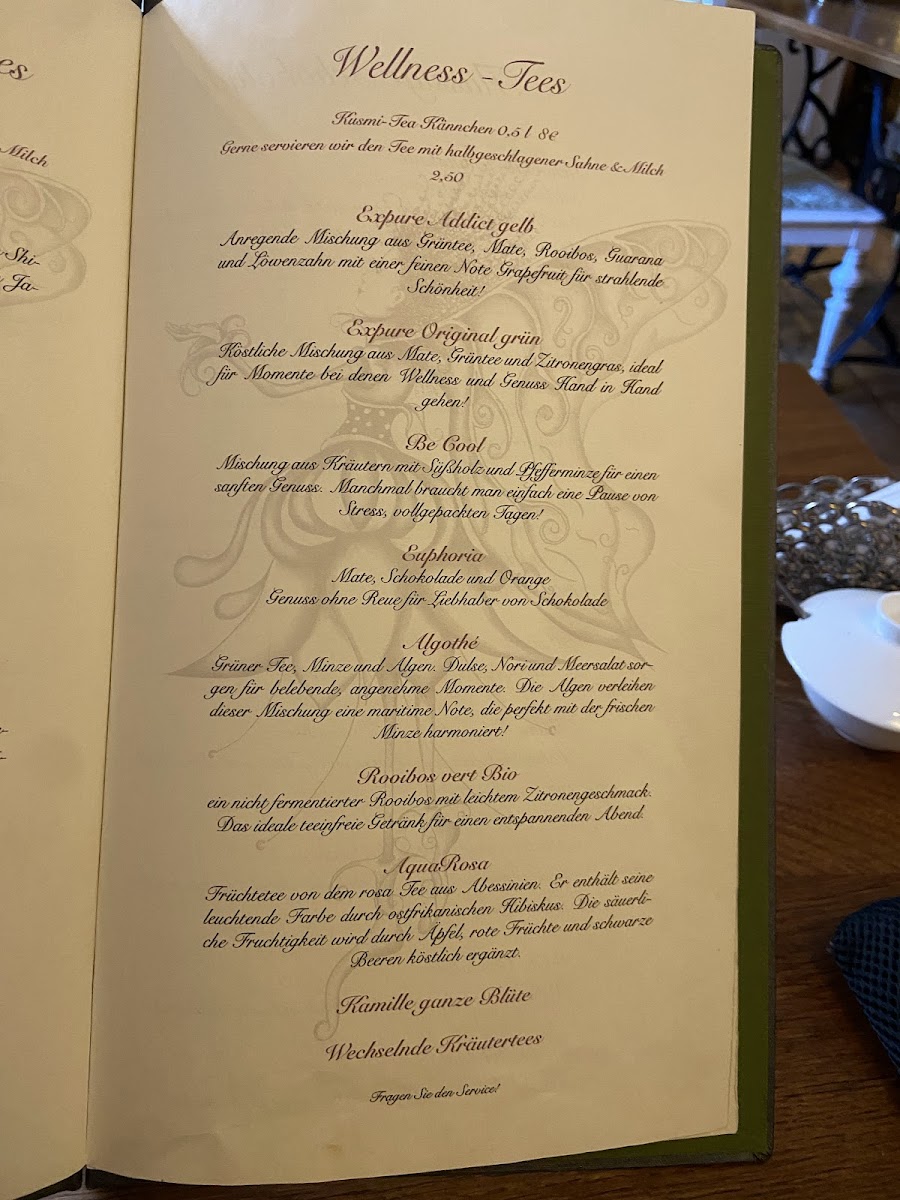 es
Milch
Shi-
Ja-
Wellness - Tees
Kusmi-Tea Kännchen 0,5 l 8€
Gerne servieren wir den Tee mit halbgeschlagener Sahne & Milch
2,50
Expure Addict gelb
Anregende Mischung aus Grüntee, Mate, Rooibos, Guarana
und Löwenzahn mit einer feinen Note Grapefruit für strahlende
Schönheit!
Expure Original grün
Köstliche Mischung aus Mate, Grüntee und Zitronengras, ideal
für Momente bei denen Wellness und Genuss Hand in Hand
gehen!
Be Cool
Mischung aus Kräutern mit Süßholz und Pfefferminze für einen
sanften Genuss. Manchmal braucht man einfach eine Pause von
Stress, vollgepackten Tagen!
Euphoria
Mate, Schokolade und Orange
Genuss ohne Reue für Liebhaber von Schokolade
Algothé
Grüner Tee, Minze und Algen. Dulse, Nori und Meersalat sor-
gen für belebende, angenehme Momente. Die Algen verleihen
dieser Mischung eine maritime Note, die perfekt mit der frischen
Minze harmoniert!
Rooibos vert Bio
ein nicht fermentierter Rooibos mit leichtem Zitronengeschmack.
Das ideale teeinfreie Getränk für einen entspannenden Abend.
AquaRosa
Früchtetee von dem rosa Tee aus Abessinien. Er enthält seine
leuchtende Farbe durch ostfrikanischen Hibiskus. Die säuerli-
che Fruchtigkeit wird durch Äpfel, rote Früchte und schwarze
Beeren köstlich ergänzt.
Kamille ganze Blüte
Wechselnde Kräutertees
Fragen Sie den Service!